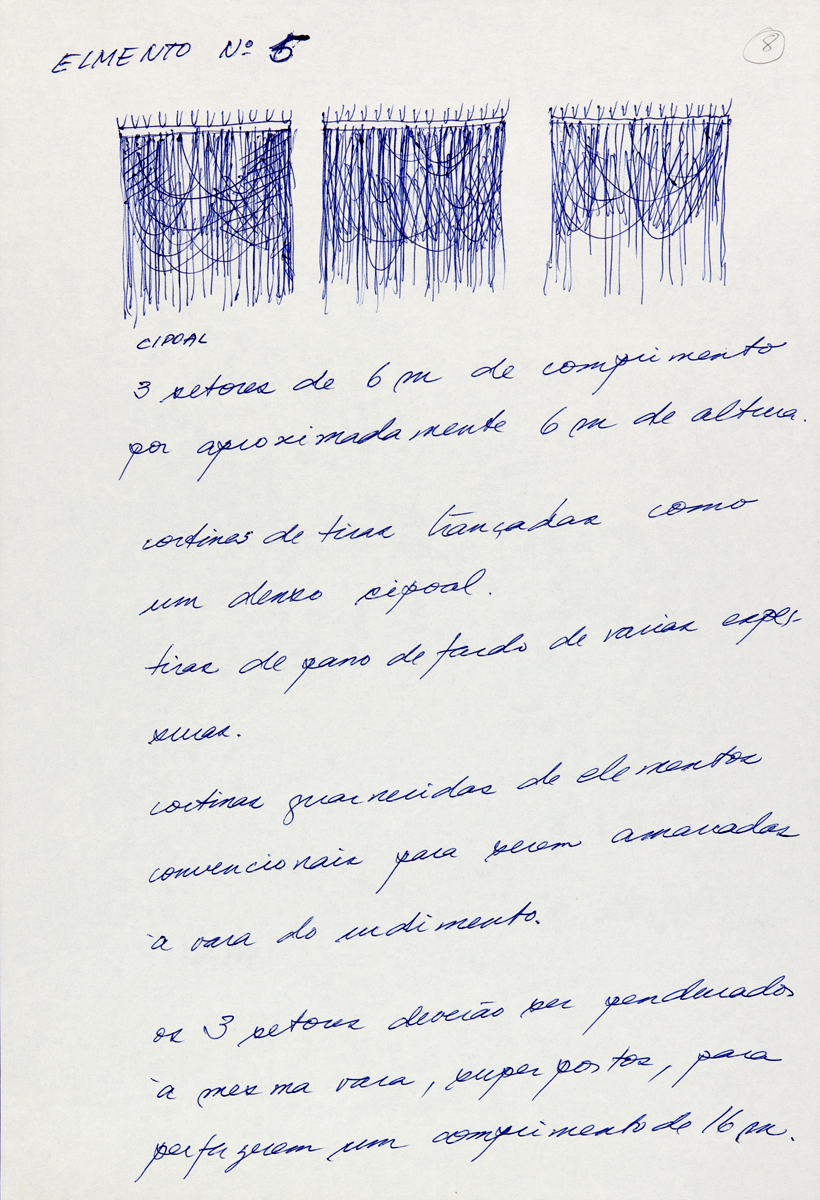 ELMENTO Nº 5
8
CIPOAL
3 setores de 6 m de comprimento
por aproximadamente 6 m de altura.
cortinas de tiras trançadas como
um denso cipoal.
tiras de pano de fardo de varias espes-
suras.
cortinas guarnecidas de elementos
convencionais para serem amarradas
à vara do urdimento.
os 3 setores deverão ser pendurados
à mesma vara, superpostos, para
perfazerem um comprimento de 16 m.